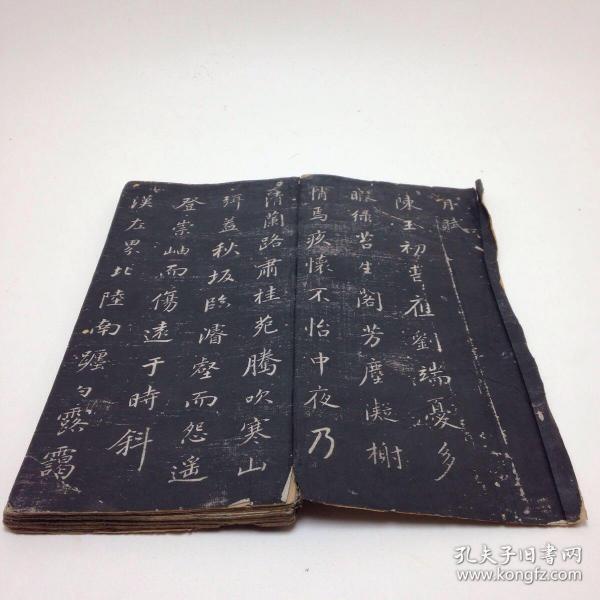 月賦
陳王初喪應劉端憂多
暇綠苔生閣芳塵凝榭
悄焉疚懷不怡中夜乃
清蘭路肅桂苑騰吹寒山
弭蓋秋坂臨濬壑而怨遥
登崇岫而傷遠于時斜
漢左界北陸南躔白露靄
孔夫子旧书网
www.kongfz.com